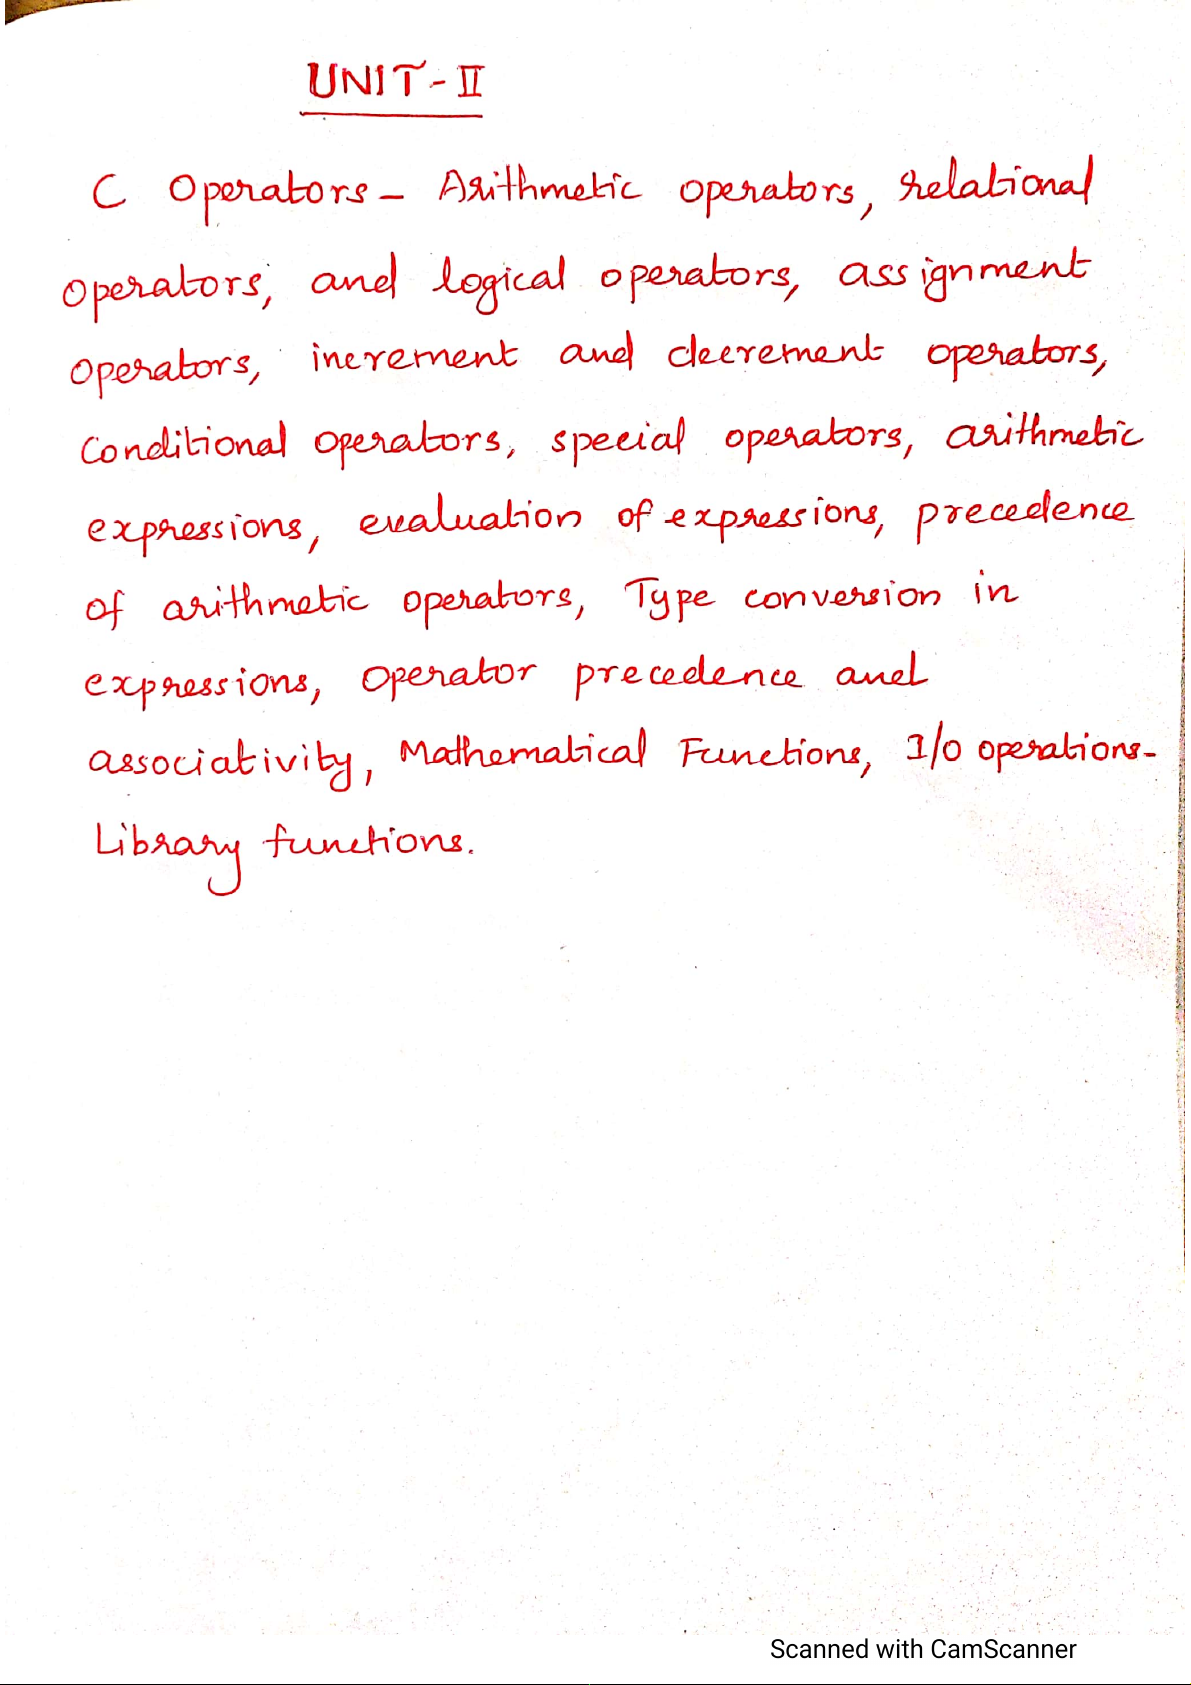 UNIT-II
C Operators - Arithmetic operators, relational
operators, and logical operators, assignment
operators, increment and decrement operators,
Conditional operators, special operators, arithmetic
expressions, evaluation of expressions, precedence
of arithmetic operators, Type conversion in
expressions, operator precedence and
associativity, Mathematical Functions, I/O operations-
Library functions.
Scanned with CamScanner